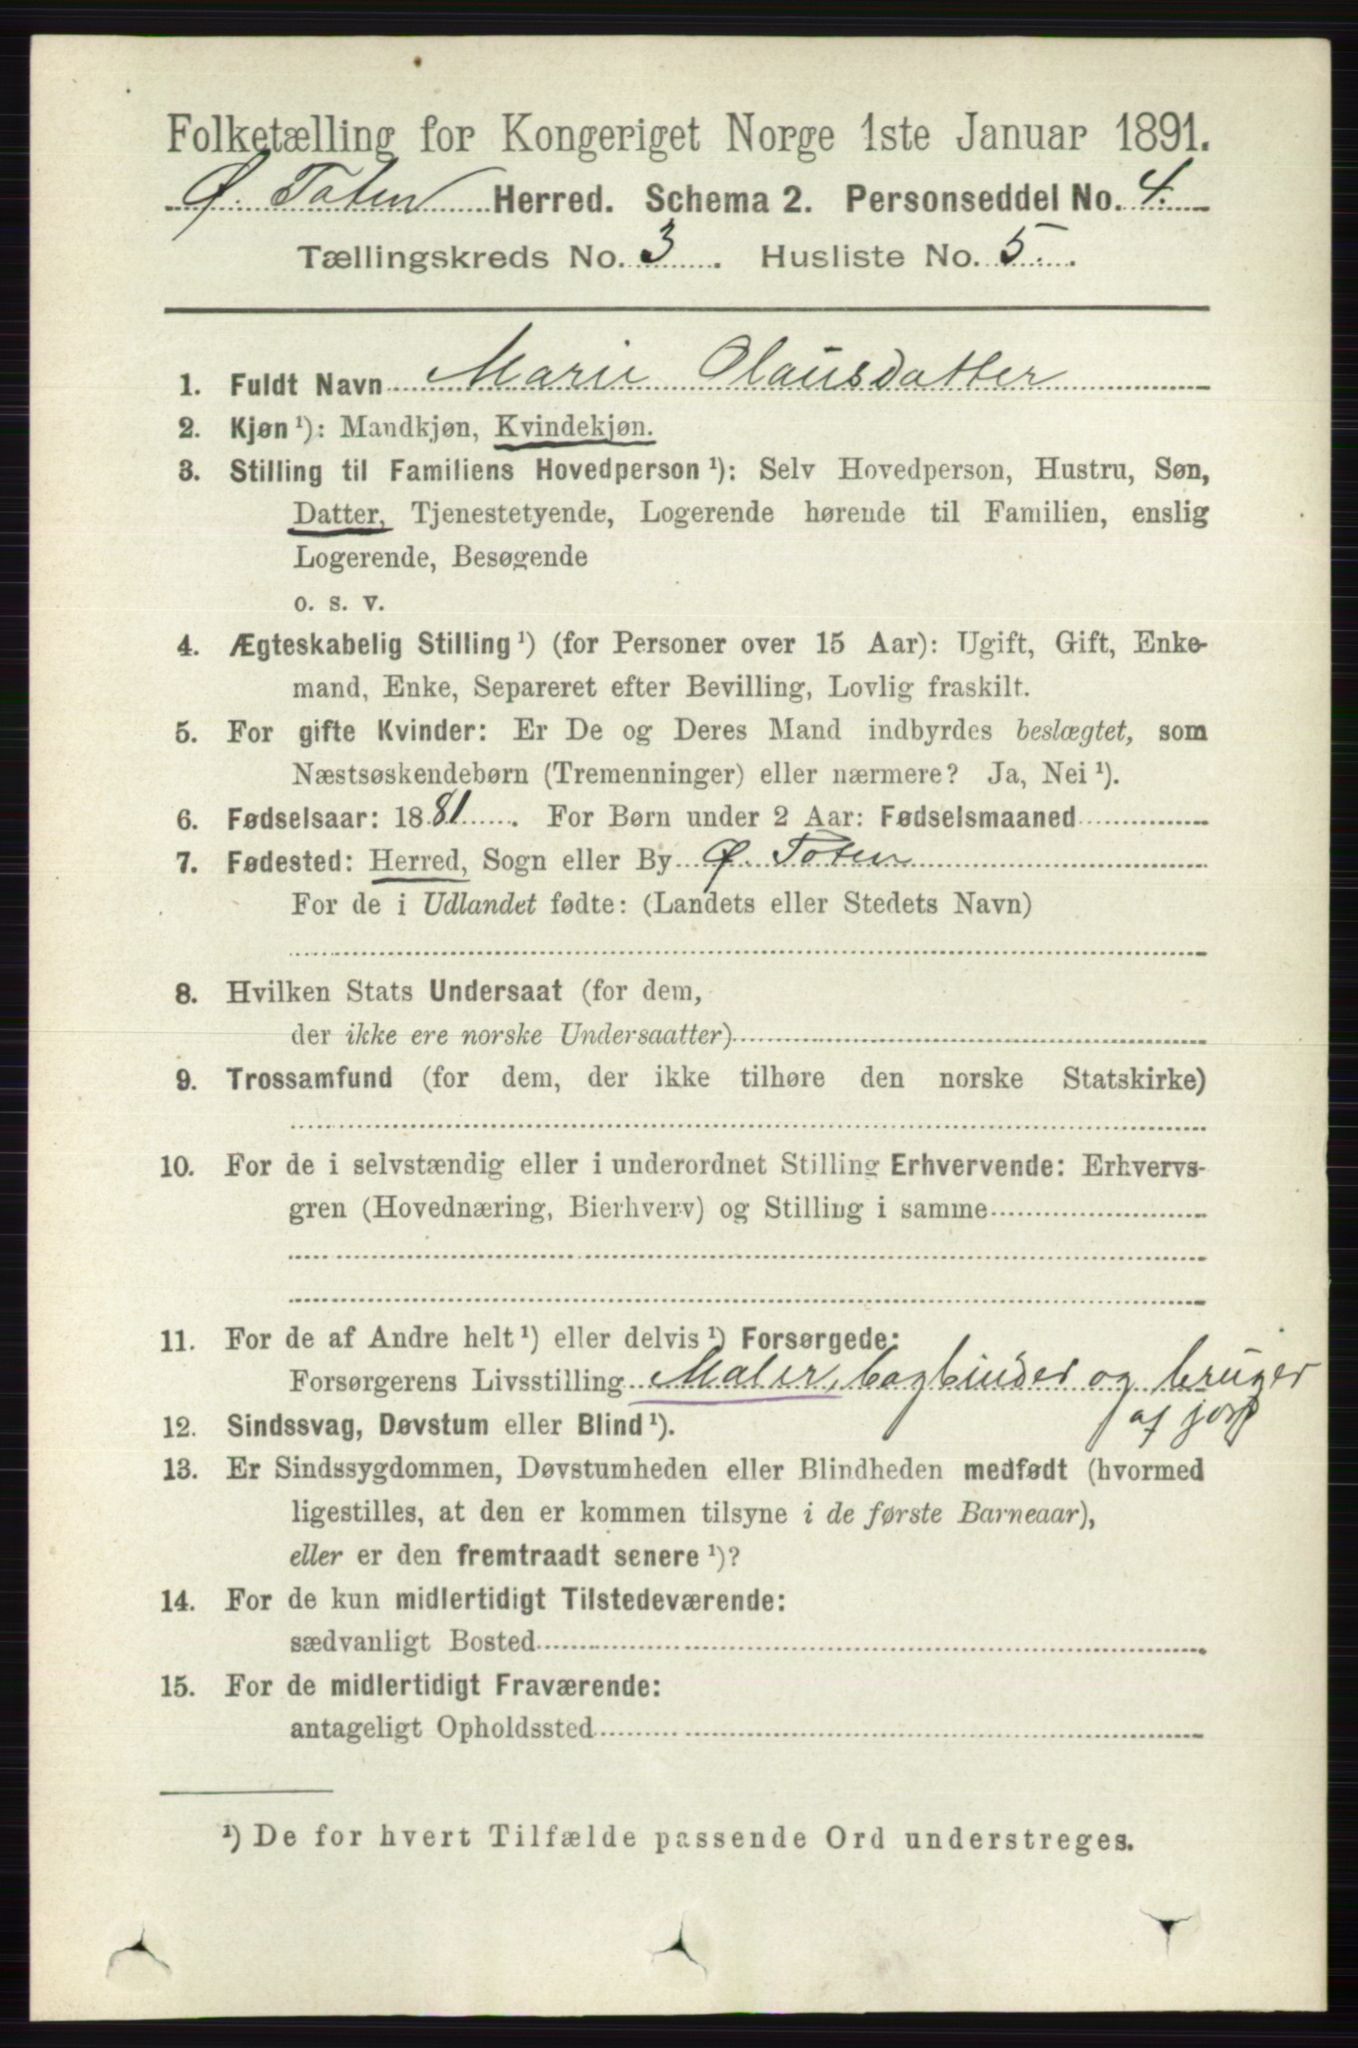 Folketælling for Kongeriget Norge 1ste Januar 1891.
Ø. Toten Herred. Schema 2. Personseddel No. 4.
Tællingskreds No. 3. Husliste No. 5.
1. Fuldt Navn Marie Clausdatter
2. Kjøn¹): Mandkjøn, Kvindekjøn.
3. Stilling til Familiens Hovedperson¹): Selv Hovedperson, Hustru, Søn,
Datter, Tjenestetyende, Logerende hørende til Familien, enslig
Logerende, Besøgende
o. s. v.
4. Ægteskabelig Stilling¹) (for Personer over 15 Aar): Ugift, Gift, Enke-
mand, Enke, Separeret efter Bevilling, Lovlig fraskilt.
5. For gifte Kvinder: Er De og Deres Mand indbyrdes beslægtet, som
Næstsøskendebørn (Tremenninger) eller nærmere? Ja, Nei¹).
6. Fødselsaar: 1881. For Børn under 2 Aar: Fødselsmaaned
7. Fødested: Herred, Sogn eller By Ø. Toten
For de i Udlandet fødte: (Landets eller Stedets Navn)
8. Hvilken Stats Undersaat (for dem,
der ikke ere norske Undersaatter)
9. Trossamfund (for dem, der ikke tilhøre den norske Statskirke)
10. For de i selvstændig eller i underordnet Stilling Erhvervende: Erhvervs-
gren (Hovednæring, Bierhverv) og Stilling i samme
11. For de af Andre helt¹) eller delvis¹) Forsørgede:
Forsørgerens Livsstilling Maler, bogbinder og bruger
af jord
12. Sindssvag, Døvstum eller Blind¹).
13. Er Sindssygdommen, Døvstumheden eller Blindheden medfødt (hvormed
ligestilles, at den er kommen tilsyne i de første Barneaar),
eller er den fremtraadt senere¹)?
14. For de kun midlertidigt Tilstedeværende:
sædvanligt Bosted
15. For de midlertidigt Fraværende:
antageligt Opholdssted
¹) De for hvert Tilfælde passende Ord understreges.